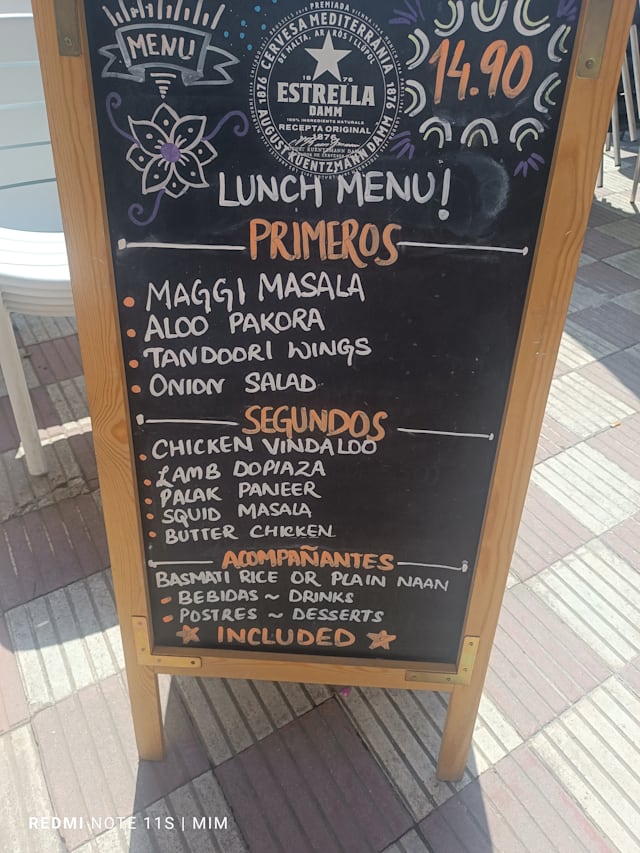 MENU
14.90
PREMIADA
CERVESA MEDITERRÀNIA
DE MALTA, ARRÒS I LLÚPOL
1876
1876
18 76
ESTRELLA
DAMM
100% INGREDIENTS NATURALS
RECEPTA ORIGINAL
1876
AUGUST KUENTZMANN DAMM
LUNCH MENU!
PRIMEROS
• MAGGI MASALA
• ALOO PAKORA
• TANDOORI WINGS
• ONION SALAD
SEGUNDOS
• CHICKEN VINDALOO
• LAMB DOPIAZA
• PALAK PANEER
• SQUID MASALA
• BUTTER CHICKEN
ACOMPAÑANTES
BASMATI RICE OR PLAIN NAAN
• BEBIDAS ~ DRINKS
• POSTRES ~ DESSERTS
INCLUDED
REDMI NOTE 11S | MIM